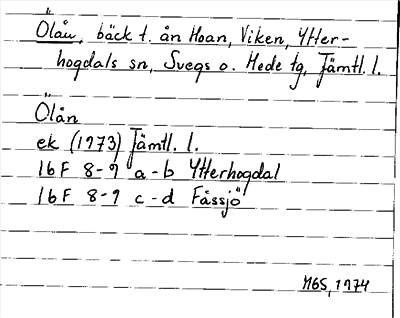 Ölån, bäck t. ån Hoan, Viken, Ytter-
hogdals sn, Svegs o. Hede tg, Jämtl. l.
Ölån
ek (1973) Jämtl. l.
16F 8-9 a-b Ytterhogdal
16F 8-9 c-d Fåssjö
MGS, 1974